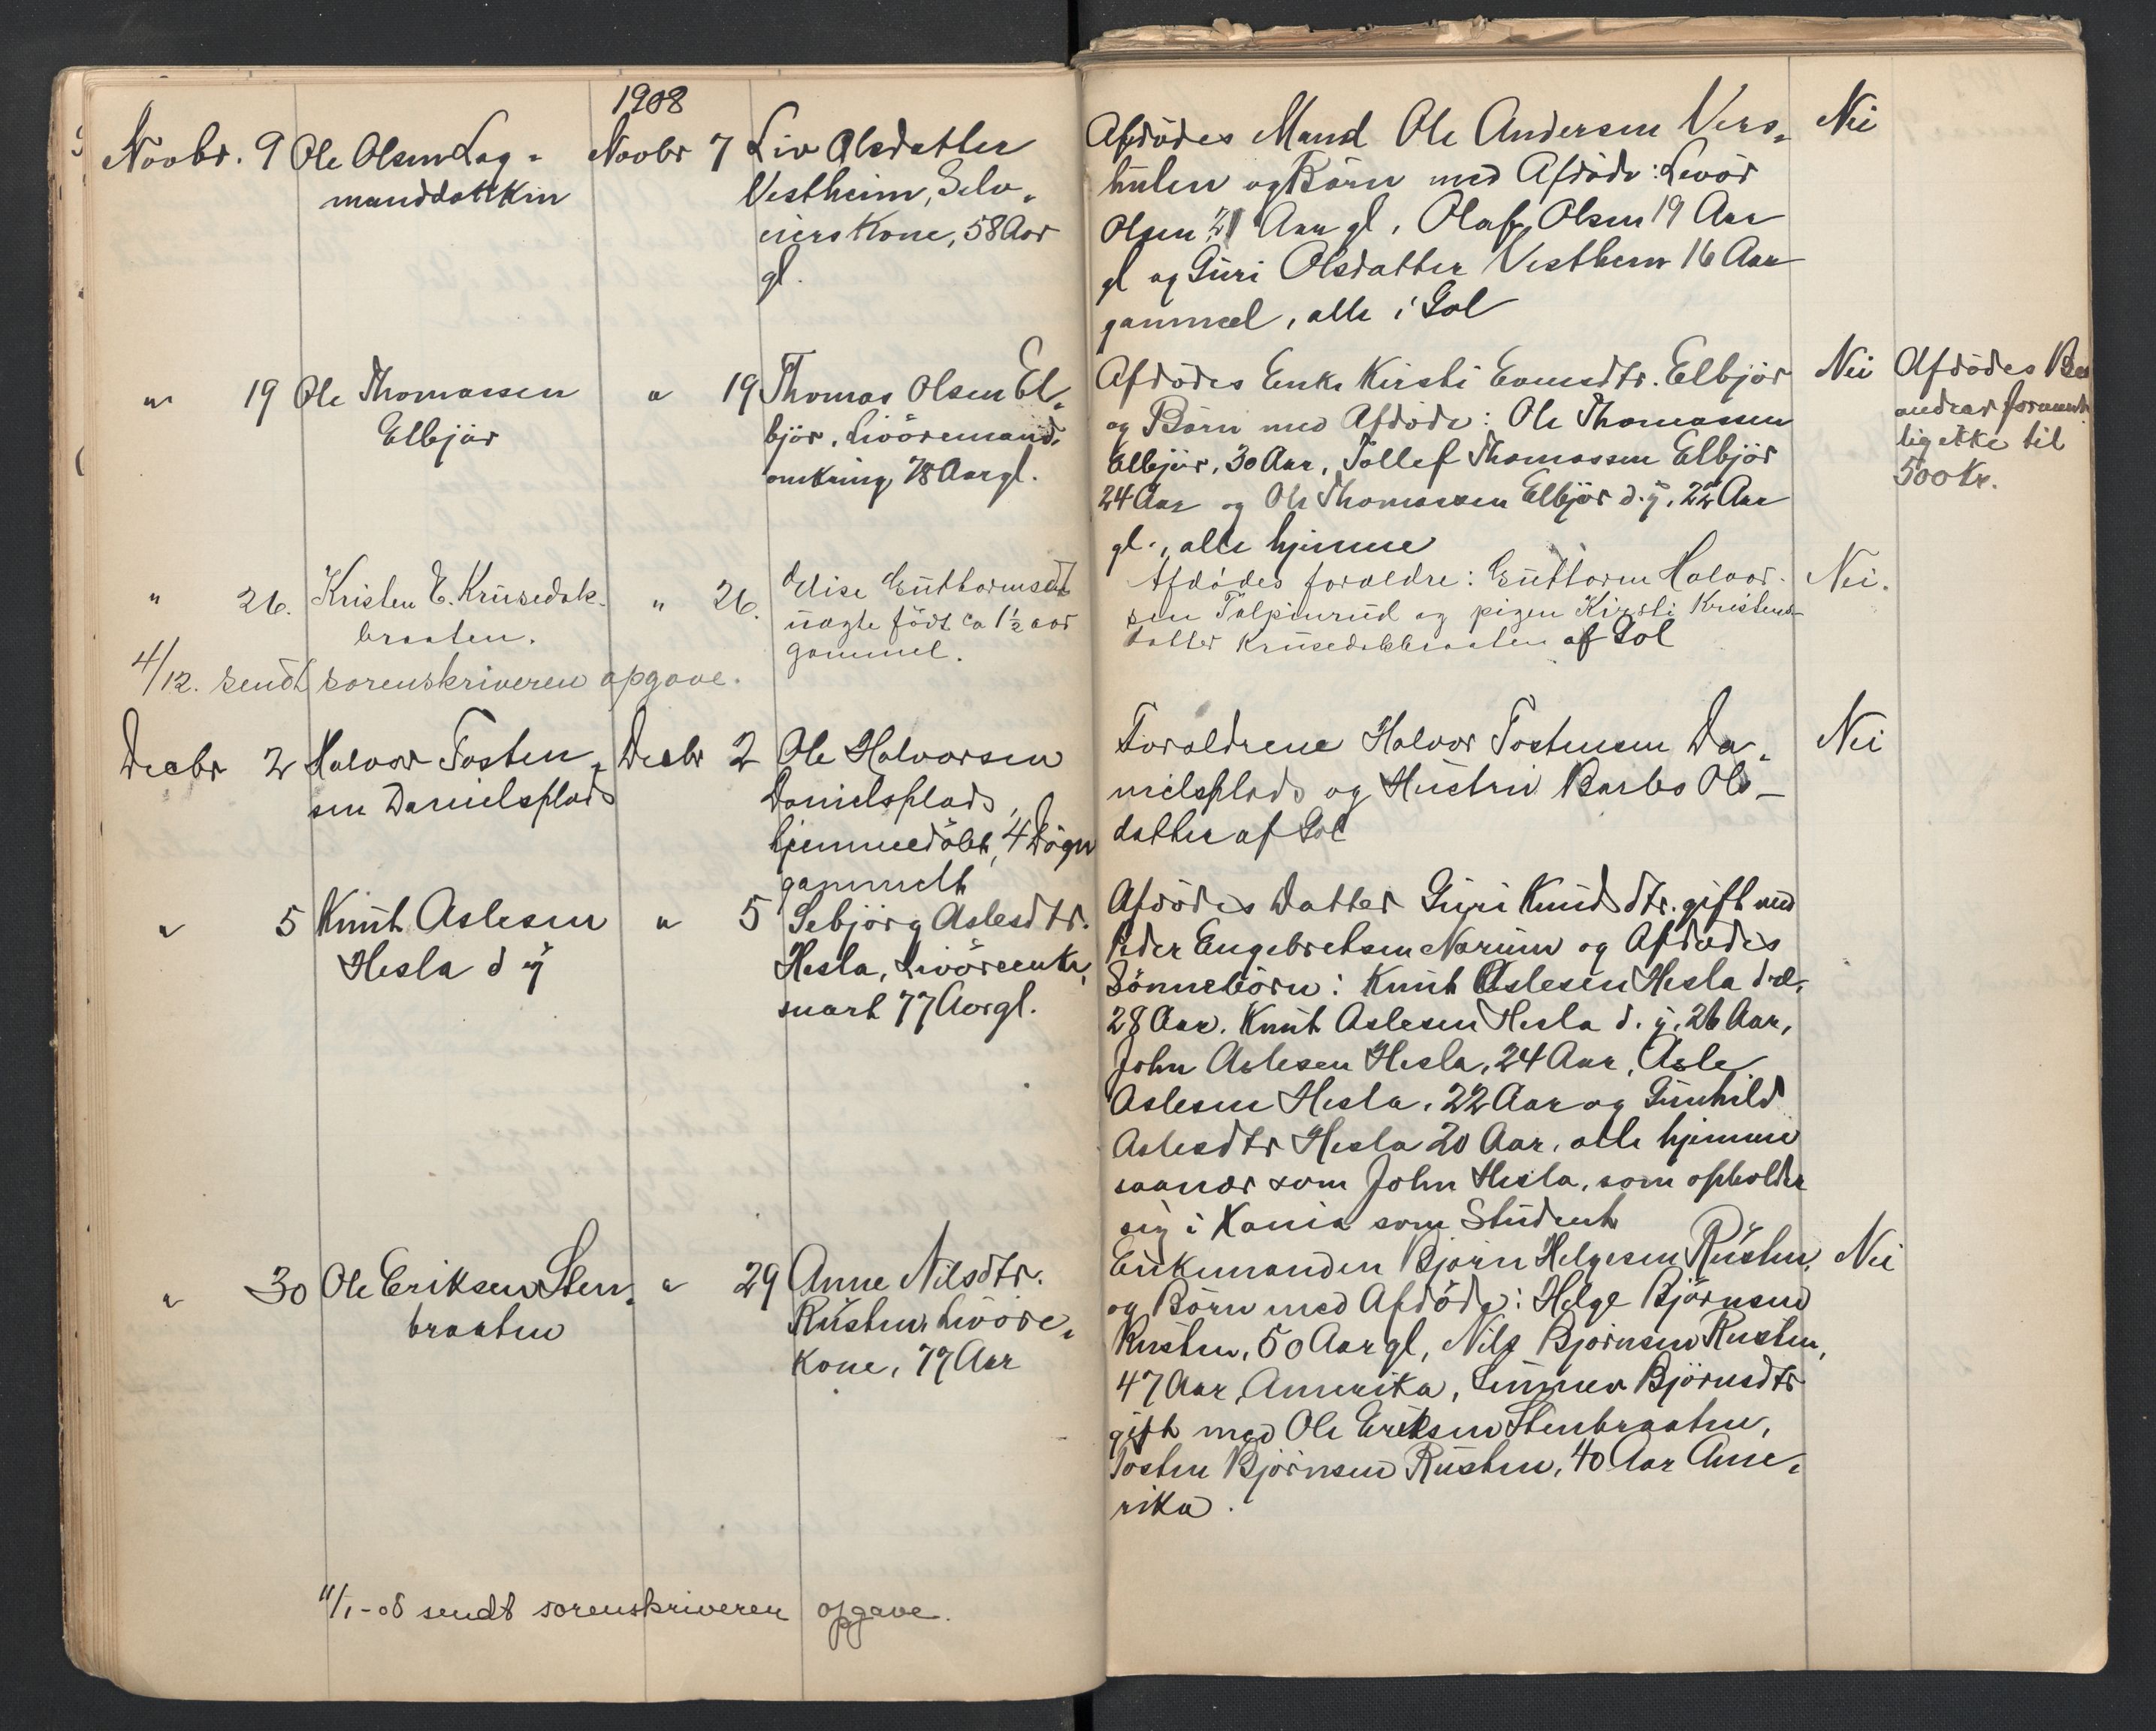 1908
Novbr. 9 Ole Olsen Lag-
manddokken
Novbr 7 Liv Olsdatter
Vestheim, Selv-
eiers Kone, 58 Aar
gl.
Afdödes Mand Ole Andersen Vers-
hulen og Börn med Afdöde: Levor
Olsen 21 Aar gl, Olaf Olsen 19 Aar
gl og Guri Olsdatter Vestheim 16 Aar
gammel, alle i Gol
Nei
" 19 Ole Thomassen
Elbjör
" 19 Thomas Olsen El-
björ, Livöremand,
omkring 78 Aar gl.
Afdödes Enke Kirsti Evensdtr. Elbjör
og Börn med Afdöde: Ole Thomassen
Elbjör, 30 Aar, Tollef Thomassen Elbjör
24 Aar og Ole Thomassen Elbjör d.y. 22 Aar
gl., alle hjemme
Nei
Afdödes Bo
andrar forment-
lig ikke til
500 Kr.
" 26. Kristen E. Krusedok-
braaten.
" 26. Elise Guttormsdt
uægte födt ca 1½ aar
gammel.
Afdödes foreldre: Guttorm Halvor-
sen Tölpinrud og pigen Kirsti Kristens-
datter Krusedokbraaten af Gol
Nei.
4/12. sendt sorenskriveren opgave.
Decbr 2 Halvor Tosten-
sen Danielsplads
Decbr 2 Ole Halvorsen
Danielsplads,
hjemmedöbt, 4 Dögn
gammelt
Foreldrene Halvor Tostensen Da-
nielsplads og Hustru Barbo Ols-
datter af Gol
Nei
" 5 Knut Aslesen
Hesla d y
" 5 Sebjörg Aslesdtr.
Hesla, Livöreenke,
snart 77 Aar gl.
Afdödes Datter Guri Knudsdtr. gift med
Peder Engebretsen Narum og Afdödes
Sönnebörn: Knut Aslesen Hesla d.æ.
28 Aar. Knut Aslesen Hesla d. y. 26 Aar,
John Aslesen Hesla, 24 Aar, Asle
Aslesen Hesla, 22 Aar og Gunhild
Aslesdtr Hesla 20 Aar, alle hjemme
saanær som John Hesla, som opholder
sig i Xania som Student
" 30 Ole Eriksen Sten-
braaten
" 29 Anne Nilsdtr.
Rusten, Livöre-
Kone, 77 Aar
Enkemanden Björn Helgesen Rusten,
og Börn med Afdöde: Helge Björnsen
Rusten, 50 Aar gl, Nils Björnsen Rusten,
47 Aar Amerika, Sünnev Björnsdtr
gift med Ole Eriksen Stenbraaten,
Tosten Björnsen Rusten, 40 Aar Ame-
rika.
Nei
11/1-08 sendt sorenskriveren opgave.